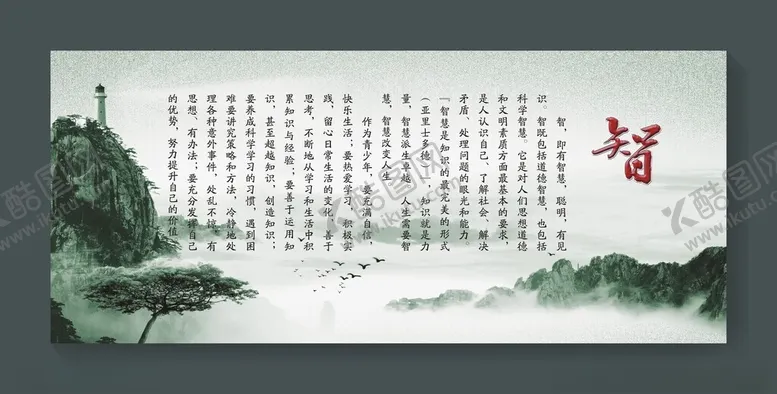 智
智，即有智慧，聪明，有见
识。智既包括道德智慧，也包括
科学智慧。它是对人们思想道德
和文明素质方面最基本的要求，
是人认识自己、了解社会、解决
矛盾、处理问题的眼光和能力。
「智慧是知识的最完美的形式
（亚里士多德）」，知识就是力
量，智慧派生卓越，人生需要智
慧，智慧改变人生。
作为青少年，要充满自信，
快乐生活；要热爱学习，积极实
践，留心日常生活的变化，善于
思考，不断地从学习和生活中积
累知识与经验；要善于运用知
识，甚至超越知识，创造知识；
要养成科学学习的习惯，遇到困
难要讲究策略和方法，冷静地处
理各种意外事件，处乱不惊，有
思想、有办法；要充分发挥自己
的优势，努力提升自己的价值。